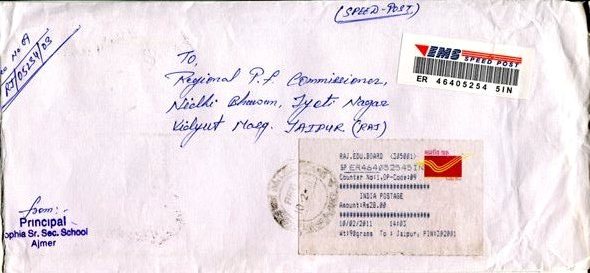 (SPEED-POST)
RJ/05234/03
EMS SPEED POST
ER 46405254 5IN
To,
Regional P.f Commissioner,
Nidhi Bhawan, Jyoti Nagar
Vidyut Marg. JAIPUR (RAJ)
RAJ.EDU.BOARD (305001)
SP ER464052545IN
Counter No:1,OP-Code:09
INDIA POSTAGE
Amount:Rs28.00
10/02/2011 14:03
Wt:90grams To : Jaipur, PIN:202001
from:-
Principal
Sophia Sr. Sec. School
Ajmer